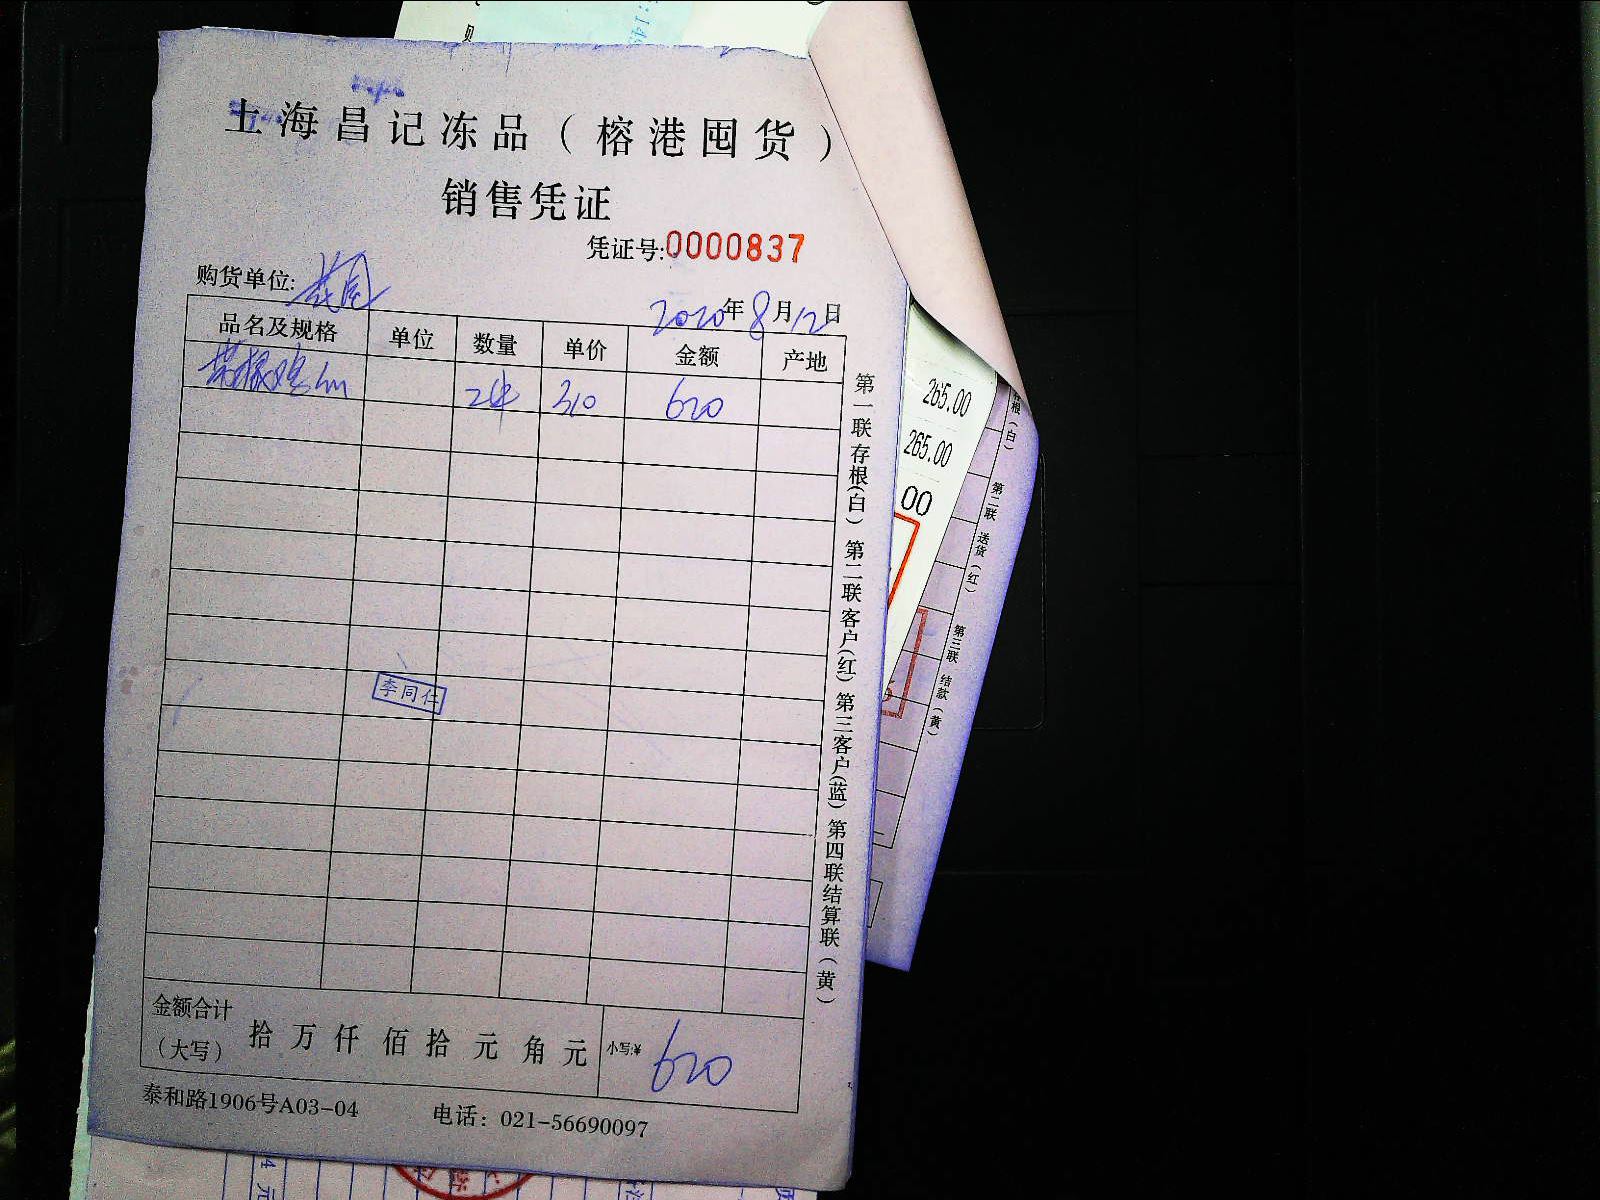 上海昌记冻品（榕港囤货）
销售凭证
凭证号:0000837
购货单位:
2020年8月12日
品名及规格 单位 数量 单价 金额 产地
2件 310 620
李同仁
金额合计（大写） 拾 万 仟 佰 拾 元 角 元 小写:¥ 620
泰和路1906号A03-04 电话：021-56690097
第一联存根(白) 第二联客户(红) 第三客户(蓝) 第四联结算联(黄)
265.00
265.00
00
根(白) 第二联 送货(红) 第三联 结款(黄)